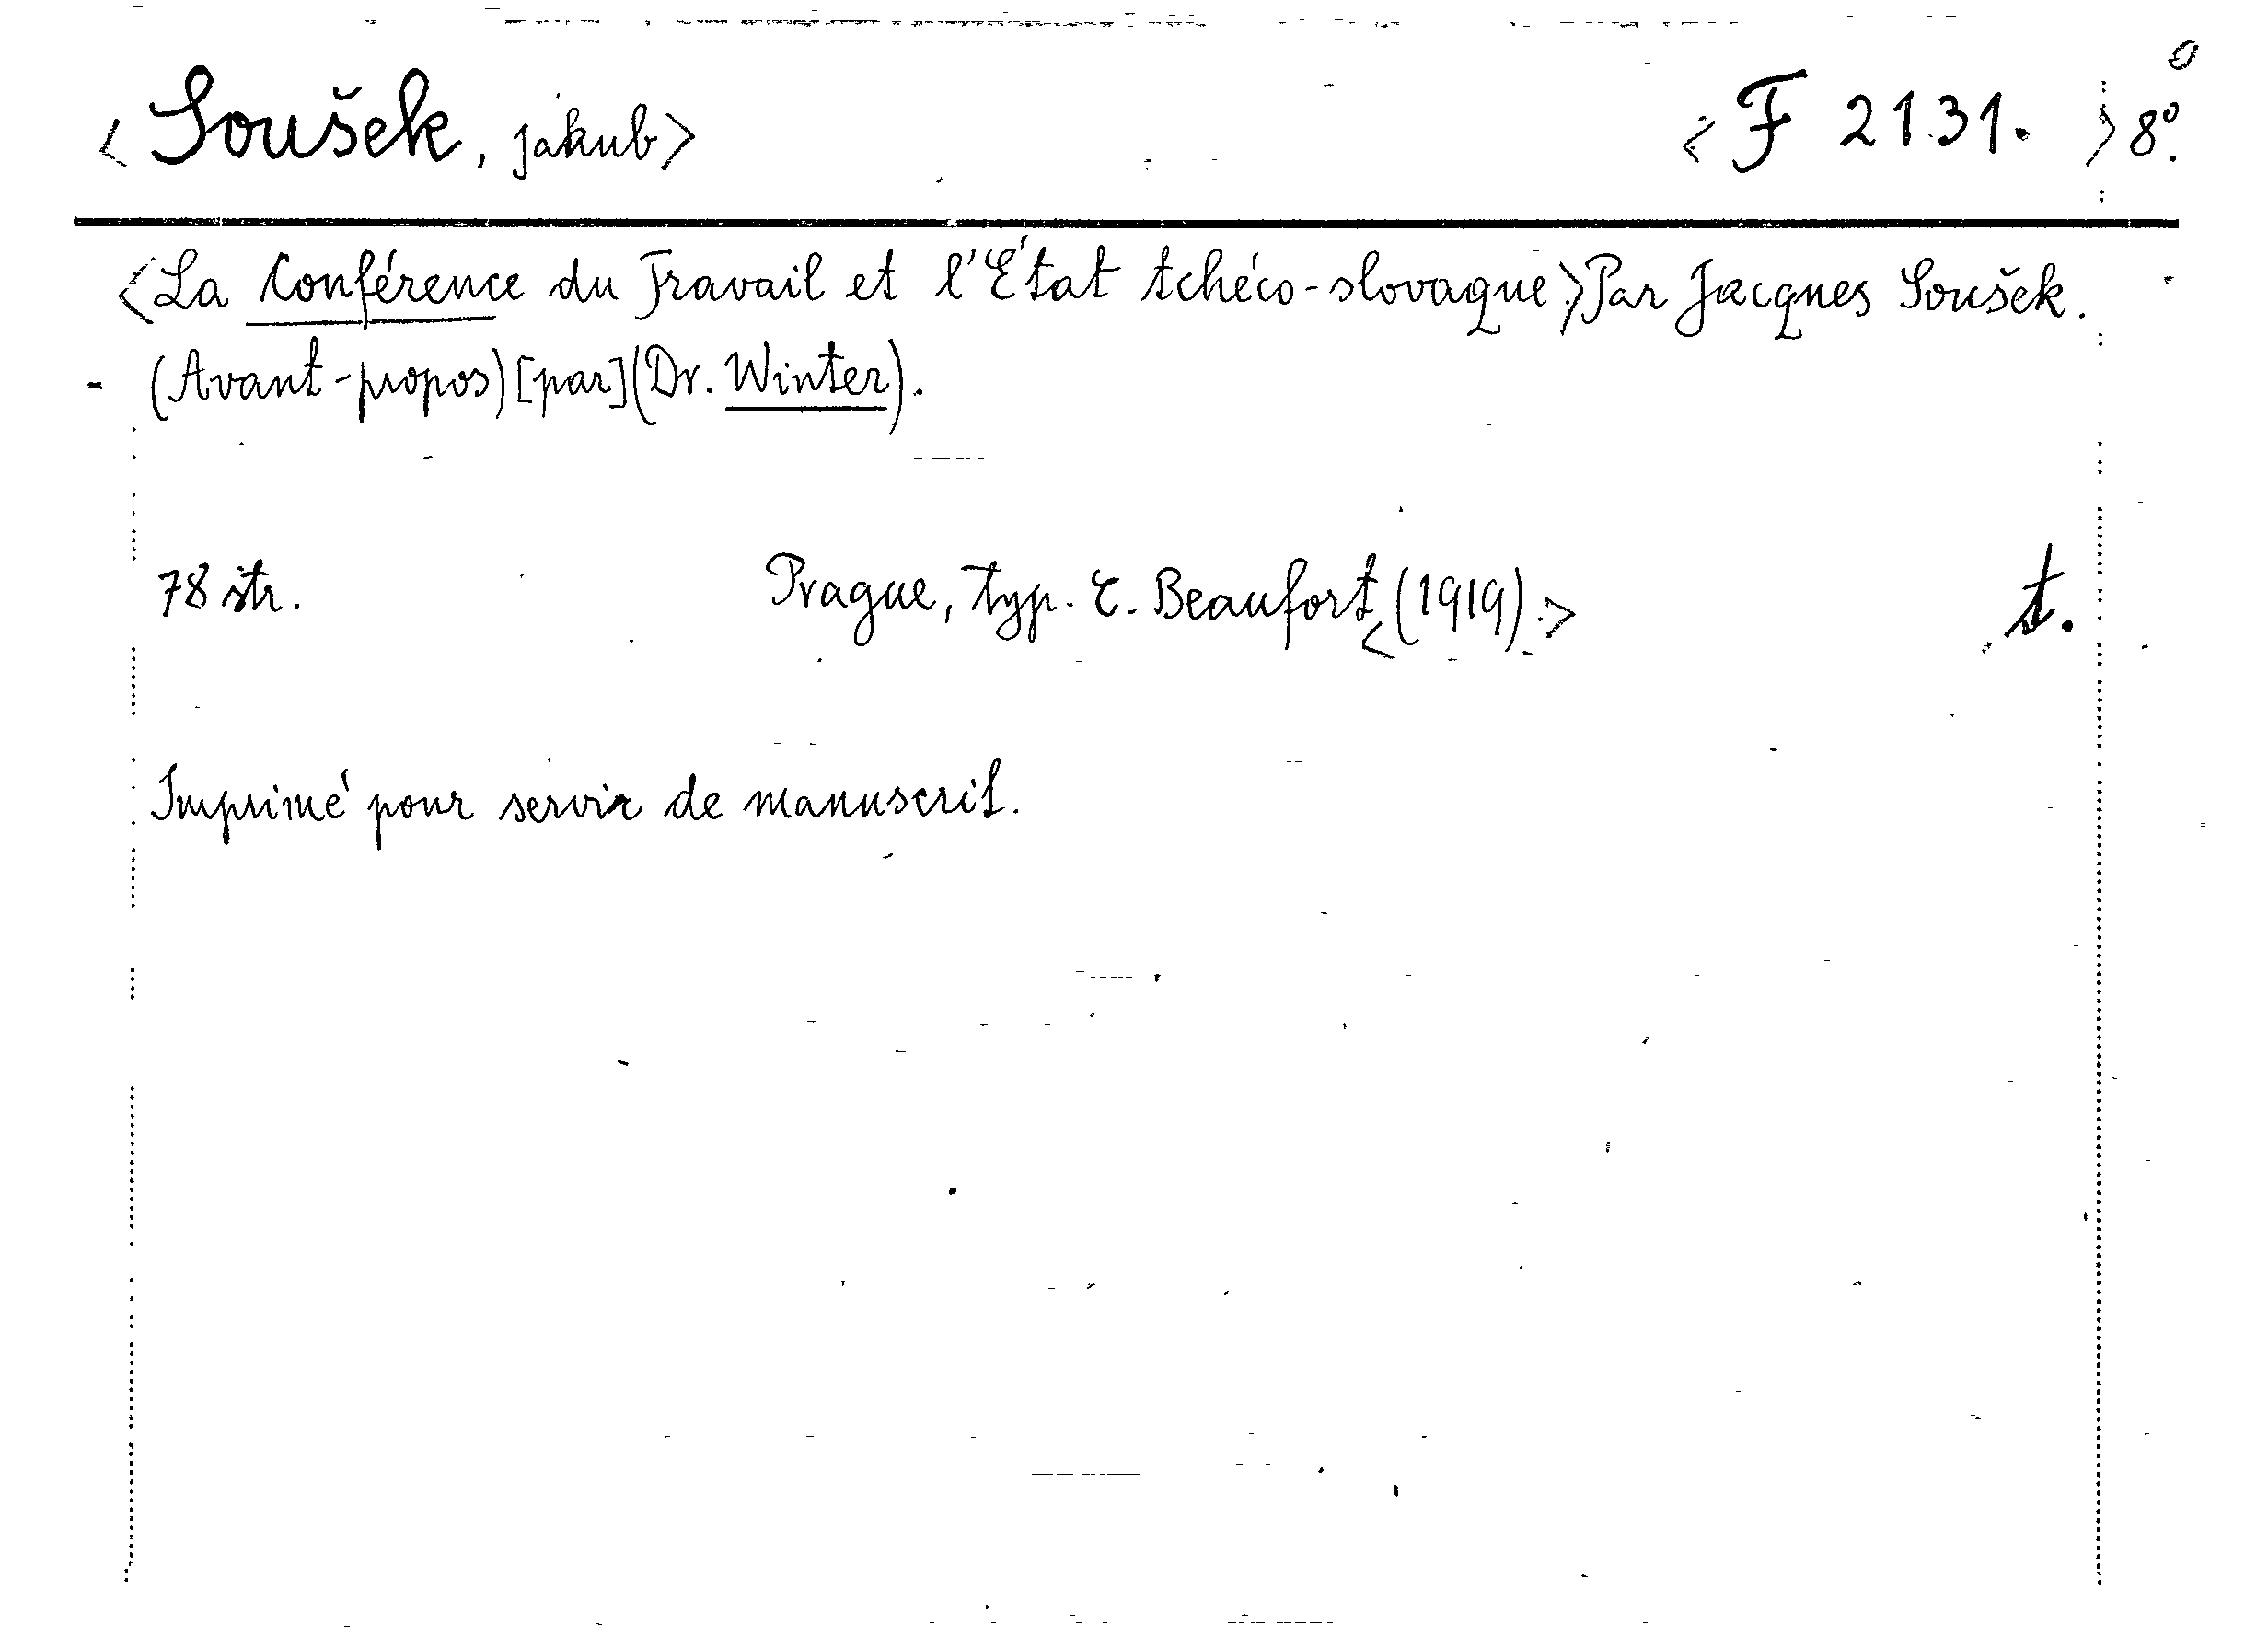 <Soušek, Jakub> <F 2131.> 8º.
<La Conférence du Travail et l'État tchéco-slovaque.> Par Jacques Soušek.
- (Avant-propos) [par] (Dr. Winter).
78 str. Prague, typ. E. Beaufort <(1919).> t.
Imprimé pour servir de manuscrit.